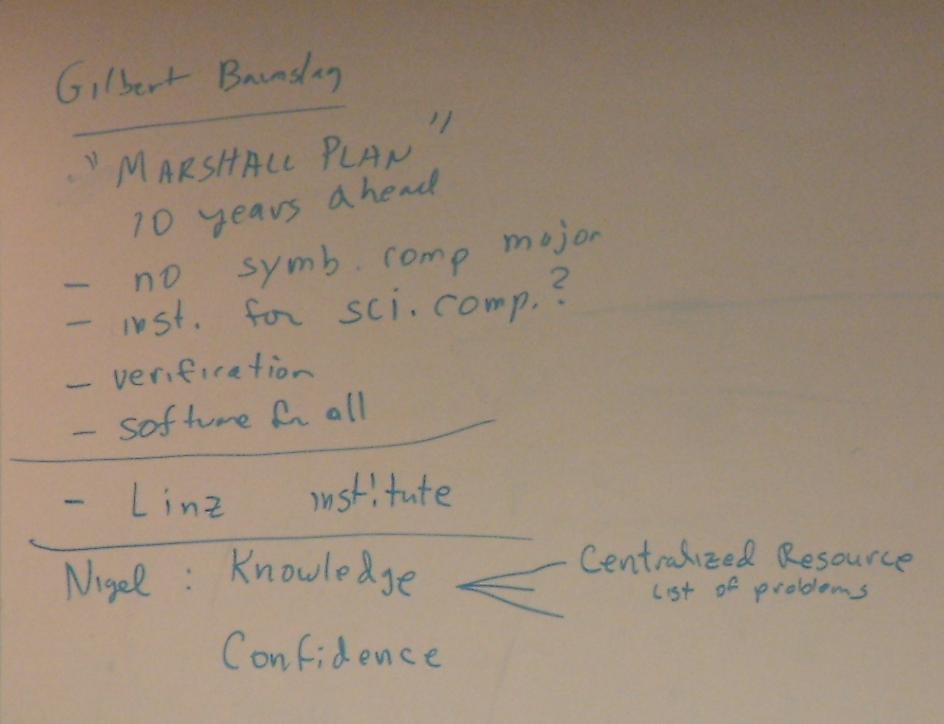 Gilbert Baumslag
"MARSHALL PLAN"
10 years ahead
- no symb. comp major
- inst. for sci. comp.?
- verification
- software for all
- Linz institute
Nigel : Knowledge
Centralized Resource
List of problems
Confidence